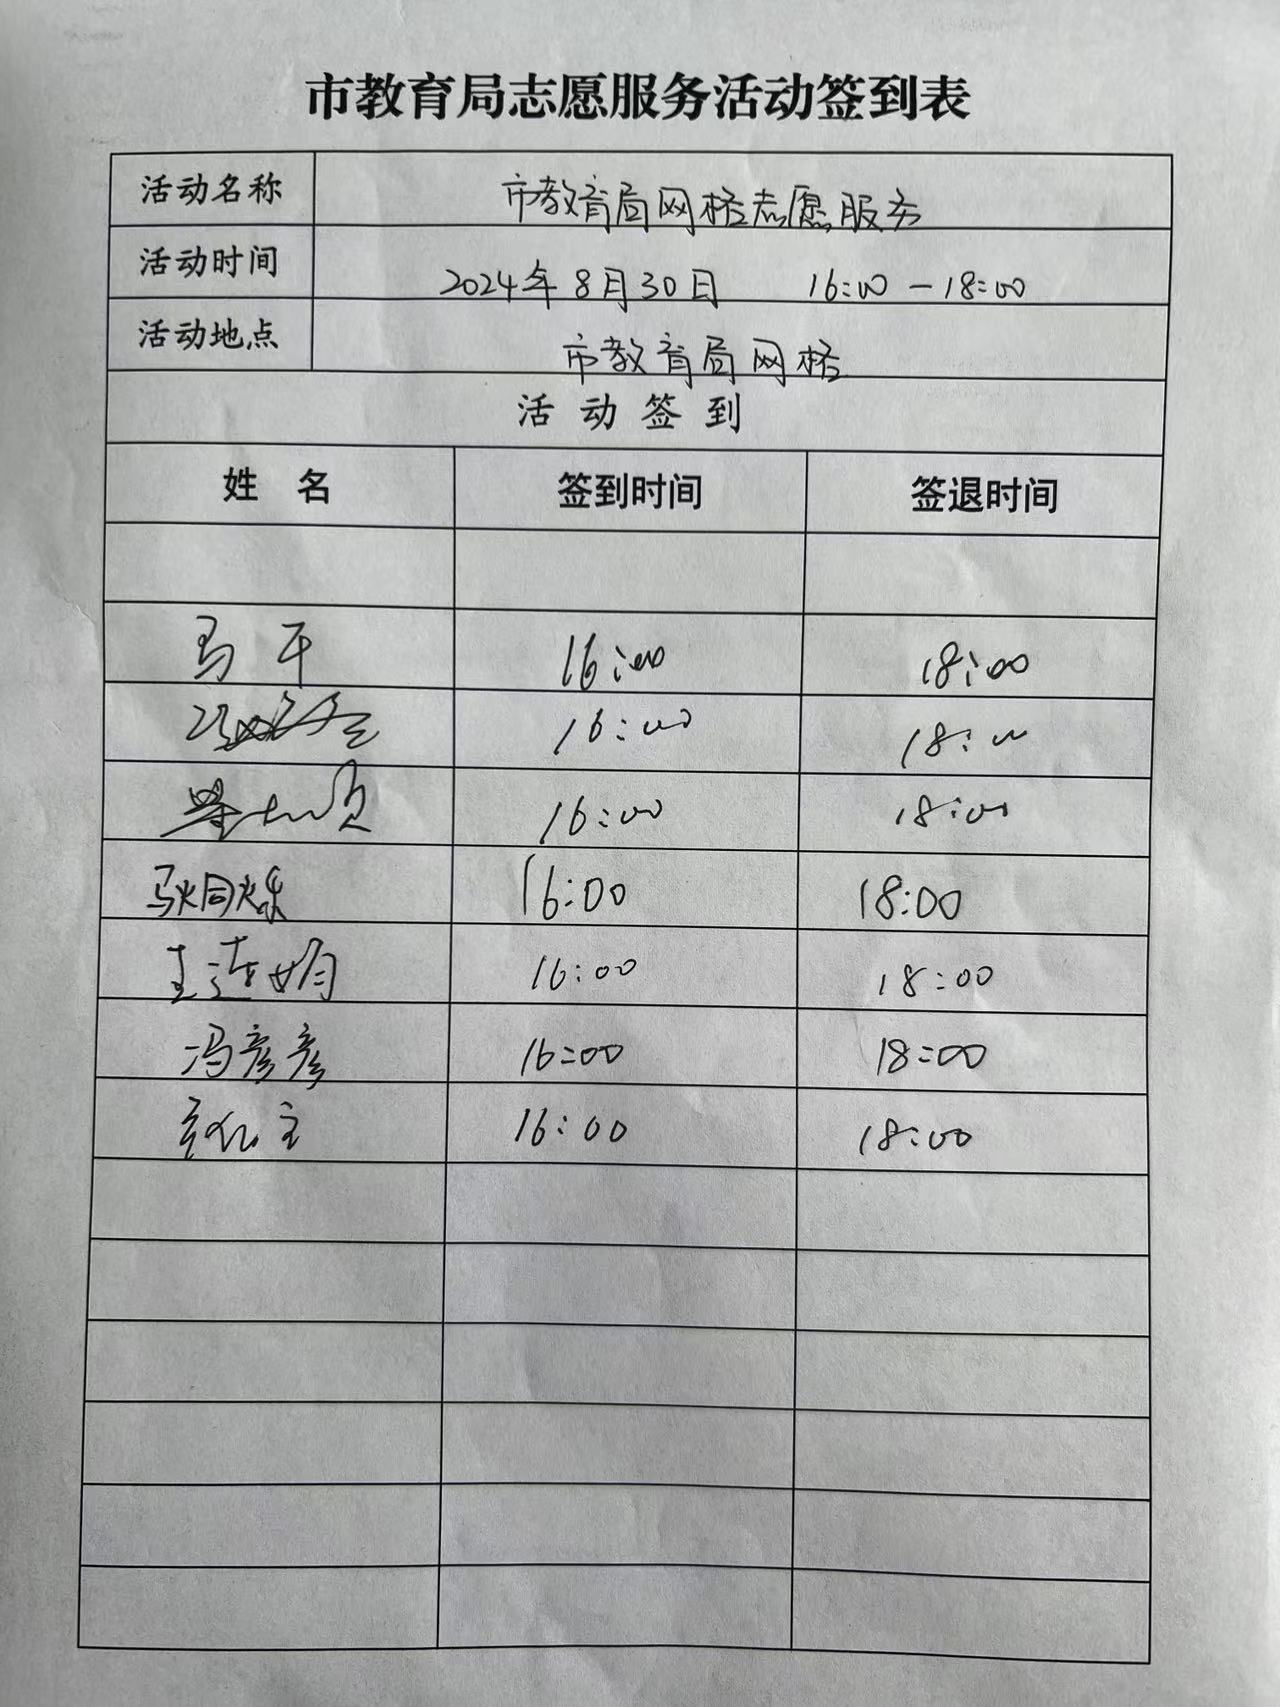 市教育局志愿服务活动签到表
活动名称 市教育局网格志愿服务
活动时间 2024年8月30日 16:00-18:00
活动地点 市教育局网格
活动签到
姓名 签到时间 签退时间
马干 16:00 18:00
16:00 18:00
16:00 18:00
16:00 18:00
王连娟 16:00 18:00
冯彦彦 16:00 18:00
16:00 18:00